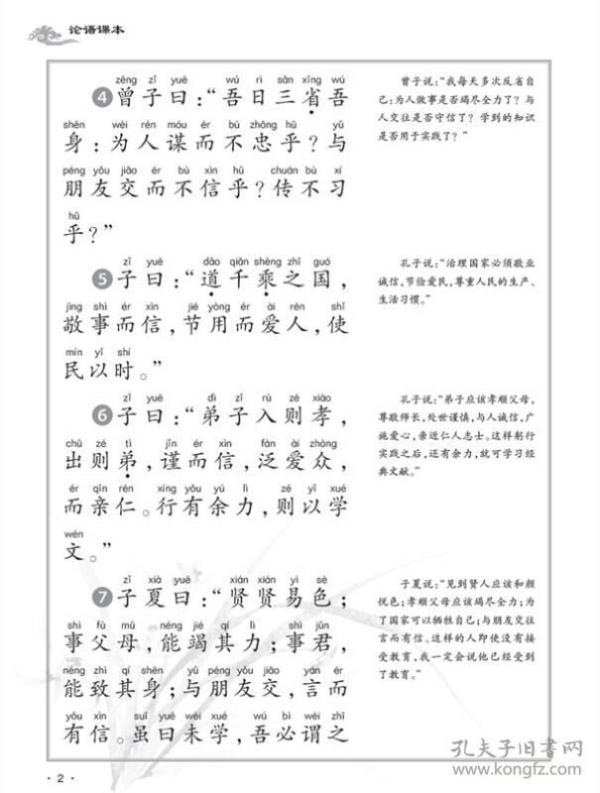 论语课本
zēng zǐ yuē wú rì sān xǐng wú
④曾子曰：“吾日三省吾
shēn wèi rén móu ér bù zhōng hū yǔ
身：为人谋而不忠乎？与
péng yǒu jiāo ér bù xìn hū chuán bù xí
朋友交而不信乎？传不习
hū
乎？”
曾子说：“我每天多次反省自
己：为人做事是否竭尽全力了？与
人交往是否守信了？学到的知识
是否用于实践了？”
zǐ yuē dǎo qiān shèng zhī guó
⑤子曰：“道千乘之国，
jìng shì ér xìn jié yòng ér ài rén shǐ
敬事而信，节用而爱人，使
mín yǐ shí
民以时。”
孔子说：“治理国家必须敬业
诚信，节俭爱民，尊重人民的生产、
生活习惯。”
zǐ yuē dì zǐ rù zé xiào
⑥子曰：“弟子入则孝，
chū zé tì jǐn ér xìn fàn ài zhòng
出则弟，谨而信，泛爱众，
ér qīn rén xíng yǒu yú lì zé yǐ xué
而亲仁。行有余力，则以学
wén
文。”
孔子说：“弟子应该孝顺父母，
尊敬师长，处世谨慎，与人诚信，广
施爱心，亲近仁人志士。这样躬行
实践之后，还有余力，就可学习经
典文献。”
zǐ xià yuē xián xián yì sè
⑦子夏曰：“贤贤易色；
shì fù mǔ néng jié qí lì shì jūn
事父母，能竭其力；事君，
néng zhì qí shēn yǔ péng yǒu jiāo yán ér
能致其身；与朋友交，言而
yǒu xìn suī yuē wèi xué wú bì wèi zhī
有信。虽曰未学，吾必谓之
子夏说：“见到贤人应该和颜
悦色；孝顺父母应该竭尽全力；为
了国家可以牺牲自己；与朋友交往
言而有信。这样的人即使没有接
受教育，我一定会说他已经受到
了教育。”
·2·
孔夫子旧书网
www.kongfz.com